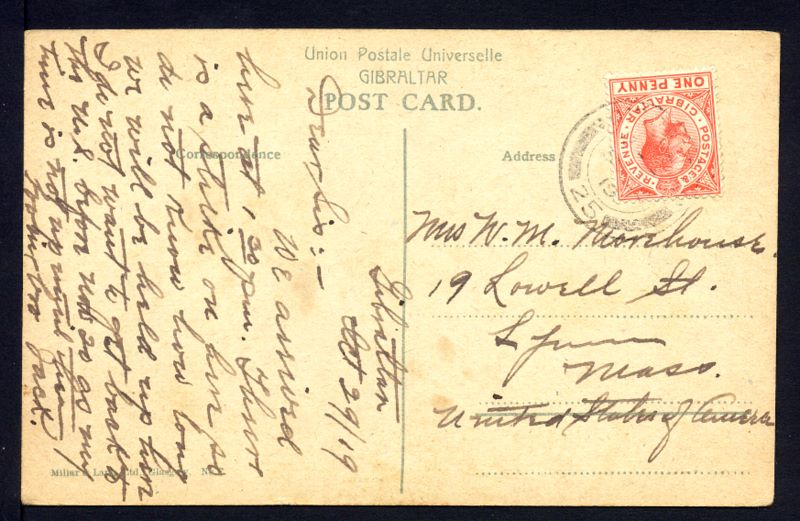 Union Postale Universelle
GIBRALTAR
POST CARD.
Correspondence
Address
ONE PENNY
GIBRALTAR
POSTAGE & REVENUE
25
Gibraltar
Oct 29/19
Dear Sis:-
We arrived
here at 1 30 pm. There
is a strike on here &
do not know how long
we will be held up here
I do not want to get back to
the U.S. before as my
time is not up until then
Your bro
Jack.
Mrs W. M. Morehouse.
19 Lowell St.
Lynn
Mass.
United States of America
Millar & Lang, Ltd., Glasgow.